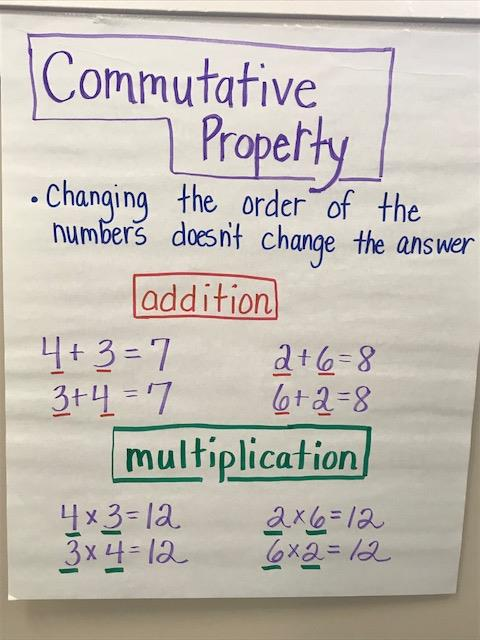 Commutative
Property
• Changing the order of the
numbers doesn't change the answer
addition
4 + 3 = 7 2 + 6 = 8
3 + 4 = 7 6 + 2 = 8
multiplication
4 x 3 = 12 2 x 6 = 12
3 x 4 = 12 6 x 2 = 12